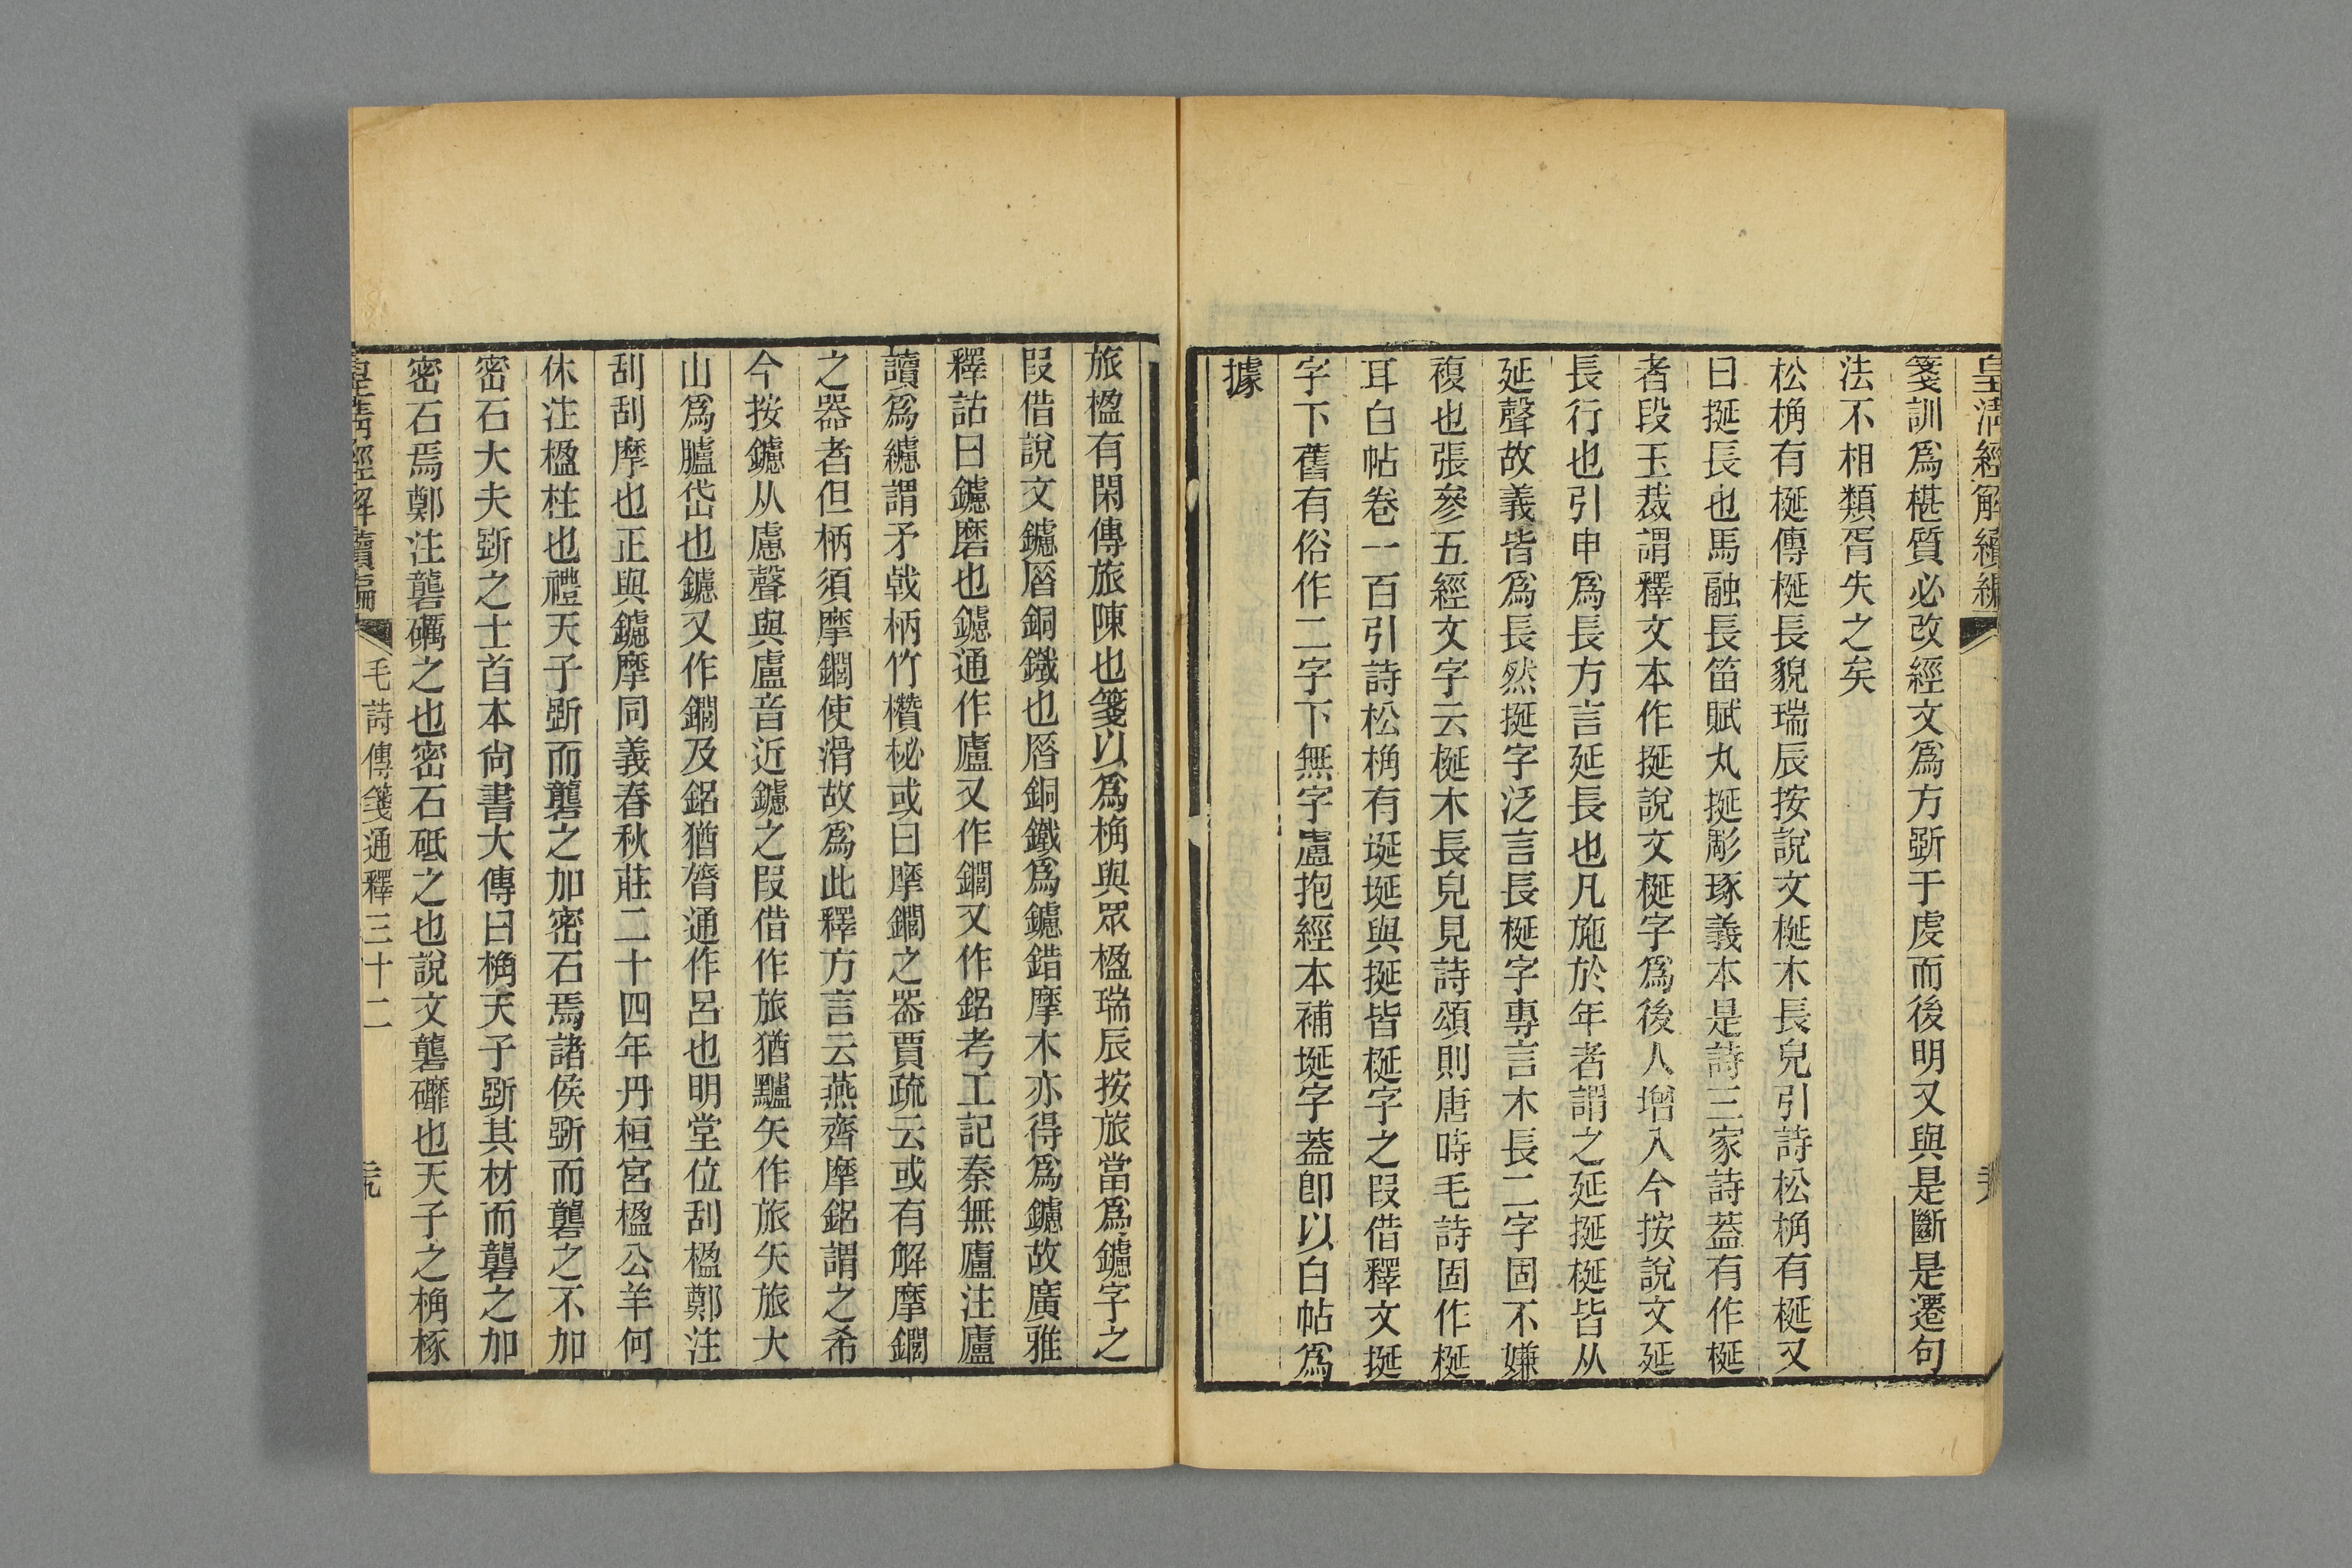 皇清經解續編
箋訓爲椹質必改經文爲方斲于虔而後明又與是斷是遷句
法不相類胥失之矣
松桷有梴傳梴長貌瑞辰按說文梴木長皃引詩松桷有梴又
曰挻長也馬融長笛賦丸挻彫琢義本是詩三家詩葢有作梴
者段玉裁謂釋文本作挻說文梴字爲後人增入今按說文延
長行也引申爲長方言延長也凡施於年者謂之延挻梴皆从
延聲故義皆爲長然挻字泛言長梴字專言木長二字固不嫌
複也張參五經文字云梴木長皃見詩頌則唐時毛詩固作梴
耳白帖卷一百引詩松桷有埏埏與挻皆梴字之叚借釋文挻
字下舊有俗作二字下無字盧抱經本補埏字葢卽以白帖爲
據
旅楹有閑傳旅陳也箋以爲桷與眾楹瑞辰按旅當爲鑢字之
叚借說文鑢厝銅鐵也厝銅鐵爲鑢錯摩木亦得爲鑢故廣雅
釋詁曰鑢磨也鑢通作廬又作鐗又作鋁考工記秦無廬注廬
讀爲纑謂矛戟柄竹欑柲或曰摩鐗之器賈疏云或有解摩鐗
之器者但柄須摩鐗使滑故爲此釋方言云燕齊摩鋁謂之希
今按鑢从慮聲與盧音近鑢之叚借作旅猶黸矢作旅矢旅大
山爲臚岱也鑢又作鐗及鋁猶膂通作呂也明堂位刮楹鄭注
刮刮摩也正與鑢摩同義春秋莊二十四年丹桓宮楹公羊何
休注楹柱也禮天子斲而礱之加密石焉諸侯斲而礱之不加
密石大夫斲之士首本尙書大傳曰桷天子斲其材而礱之加
密石焉鄭注礱礪之也密石砥之也說文礱䃺也天子之桷椓
皇淸經解續編
毛詩傳箋通釋三十二